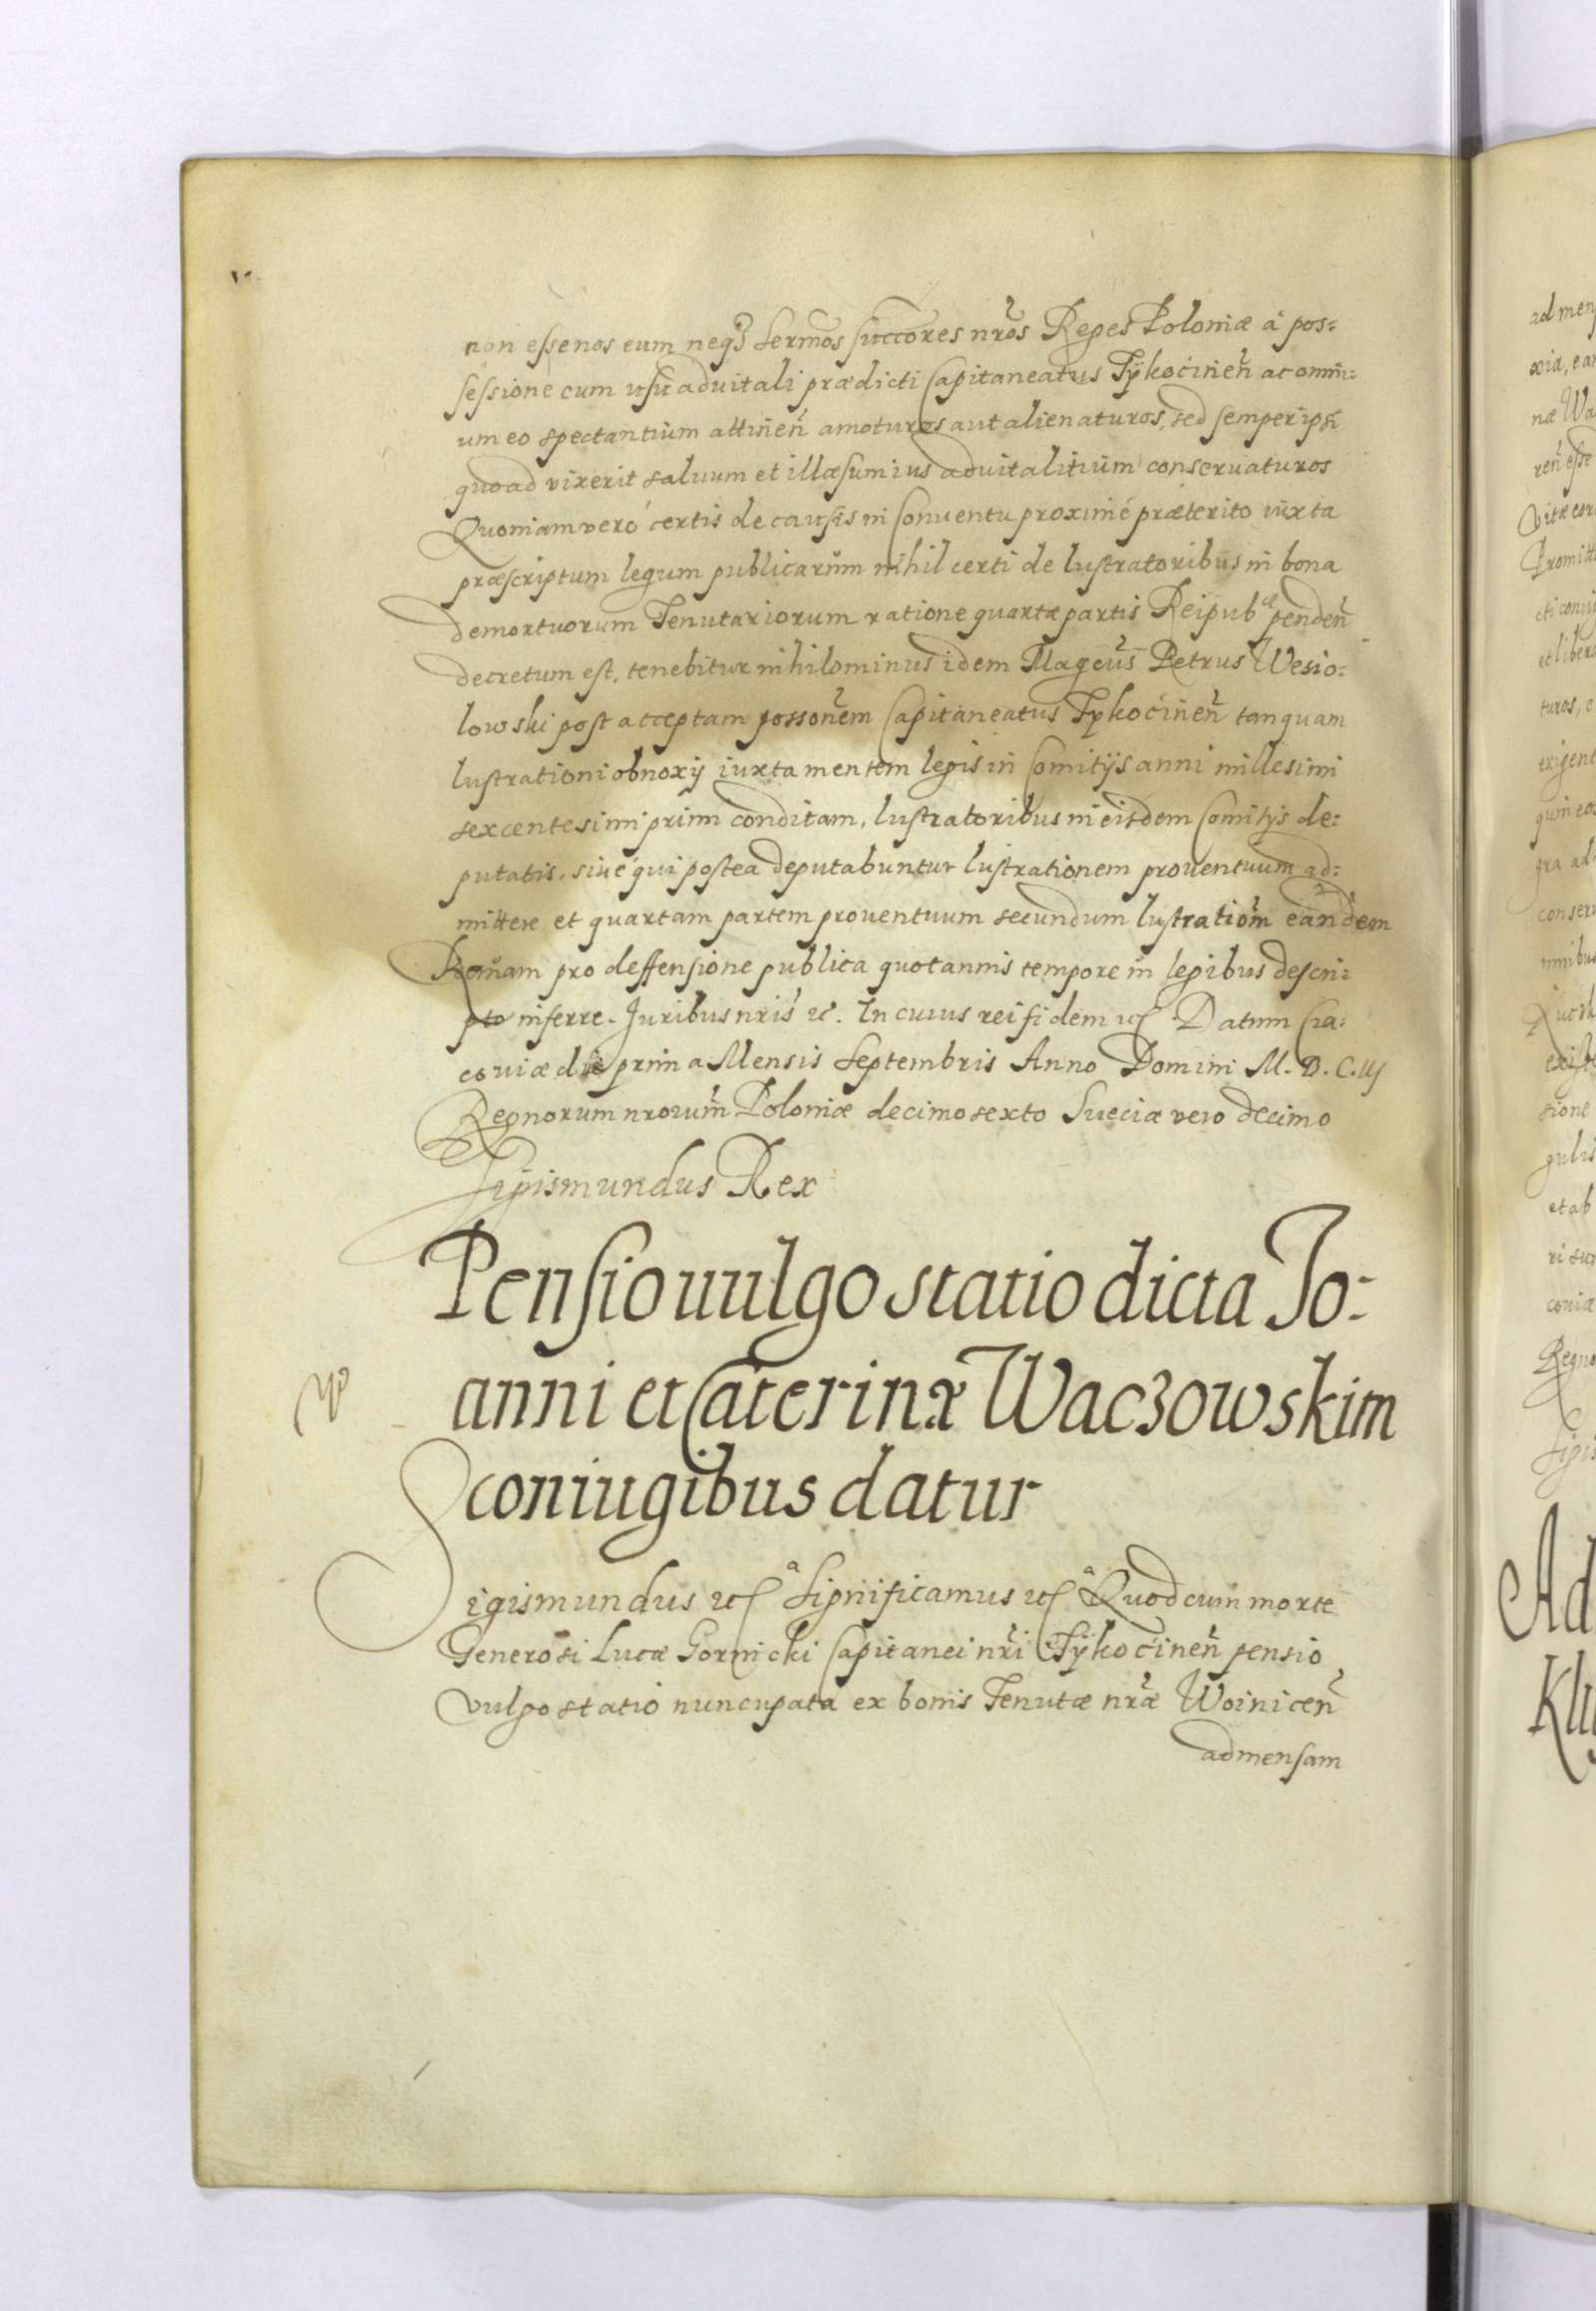 non essenos eum neq3 Sermos succores nros Reges Poloniæ á pos:
sessione cum usu aduitali prædicti Capitaneatus Tÿkocinen ac omni:
um eo spectantium attinen amoturos aut alienaturos, sed semper ipsi
quoad vixerit saluum et illæsum ius aduitalitium conseruaturos
Quoniam veró certis de causis in Conuentu proximé præterito iuxta
præscriptum legum publicarum nihil certi de lustratoribus in bona
demortuorum Tenutariorum ratione quartæ partis Reipub penden
decretum est, tenebitur nihilominus idem Magcus Petrus Wesio:
lowski post acceptam possonem Capitaneatus Tykocinen tanquam
lustrationi obnoxij iuxta mentem legis in Comitijs anni millesimi
sexcentesimi primi conditam, lustratoribus in eisdem Comitijs de:
putatis, siue qui postea deputabuntur lustrationem prouentuum ad:
mittere et quartam partem prouentuum secundum lustratiom eandem
Rauam pro deffensione publica quotannis tempore in legibus descri:
pto inferre. Juribus nris etc. In cuius rei fidem etc Datum Cra:
couiæ die prima Mensis Septembris Anno Domini M. D. C. iij
Regnorum nrorum Poloniæ decimo sexto Sueciæ vero decimo
Sigismundus Rex
Pensio uulgo statio dicta Jo:
anni et Caterinæ Waczowskim
coniugibus datur
Sigismundus etc Significamus etc Quod cum morte
Generosi Lucæ Gornicki Capitanei nri Tÿkocinen pensio
vulgo statio nuncupata ex bonis Tenutæ nræ Woinicen
ad mensam